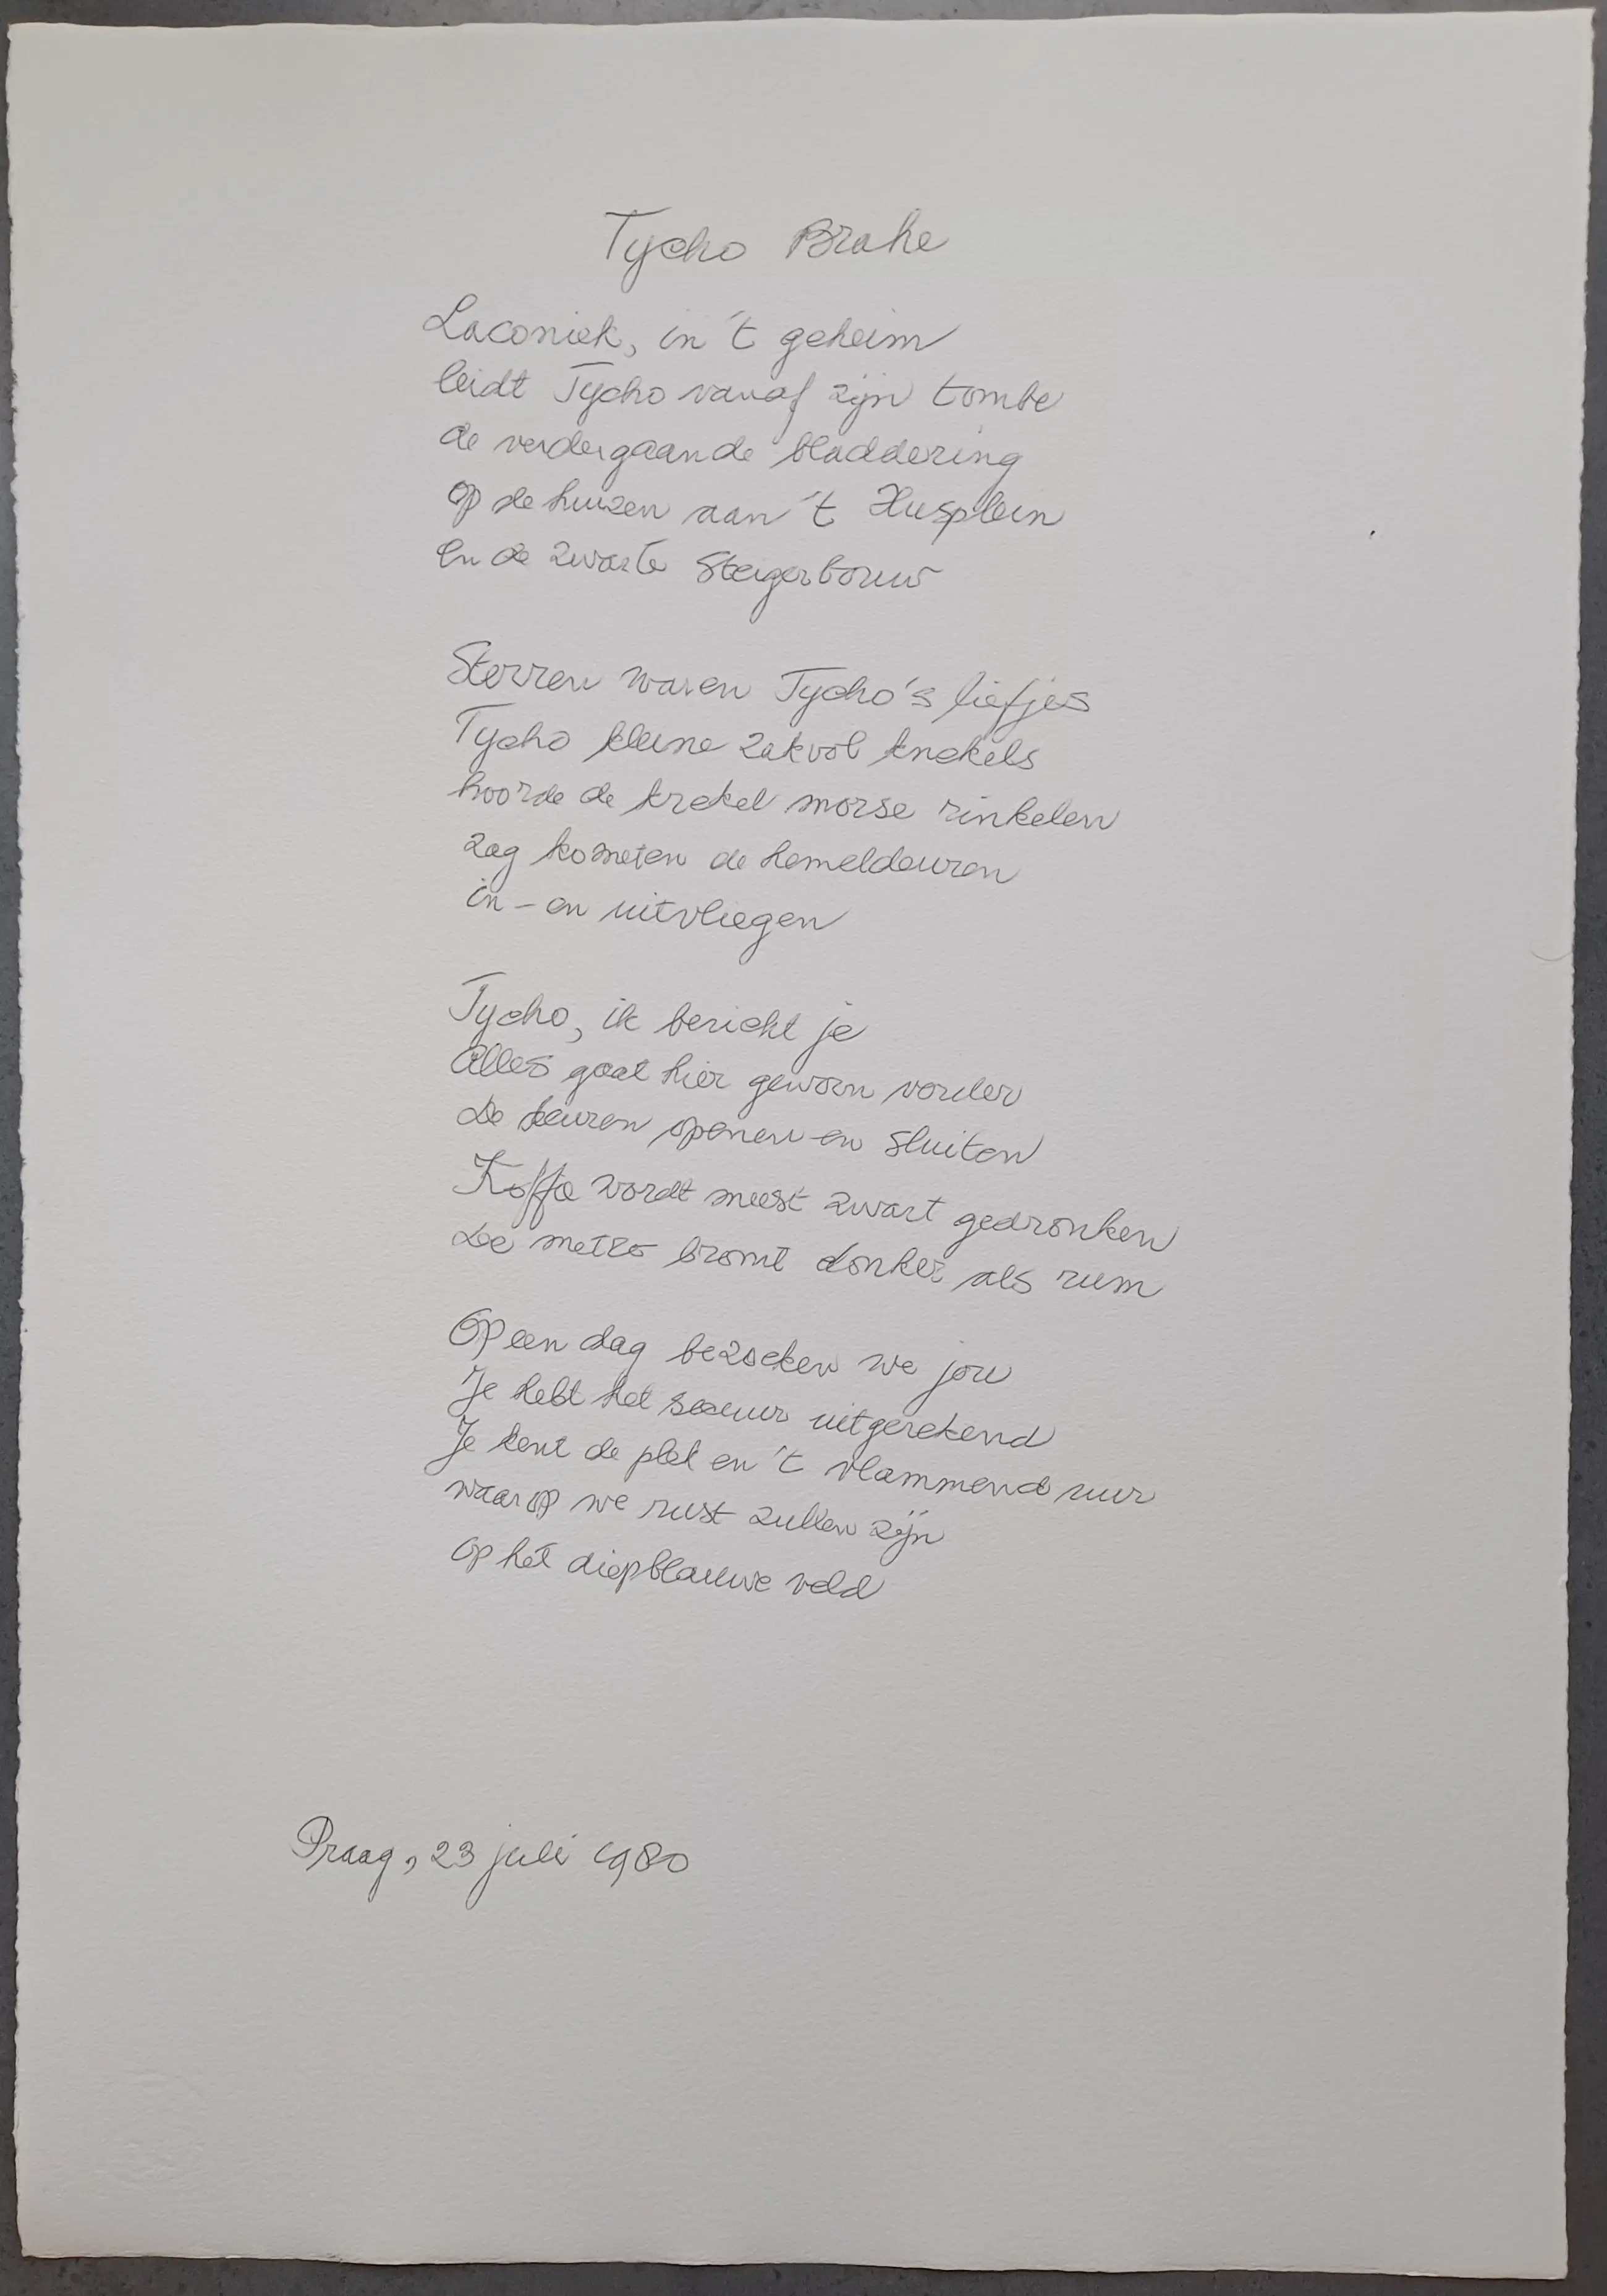 Tycho Brahe
Laconiek, in 't geheim
leidt Tycho vanaf zijn tombe
de verdergaande bladdering
op de huizen aan 't Husplein
en de zwarte steigerbouw
Sterren waren Tycho's liefjes
Tycho kleine zak vol knekels
hoorde de krekel morse rinkelen
zag kometen de hemeldeuren
in- en uitvliegen
Tycho, ik bericht je
Alles gaat hier gewoon verder
De deuren openen en sluiten
Koffie wordt meest zwart gedronken
De metro bromt donker als rum
Op een dag bezoeken we jou
Je hebt het secuur uitgerekend
Je kent de plek en 't vlammend uur
waarop we rust zullen zijn
op het diepblauwe veld
Praag, 23 juli 1980